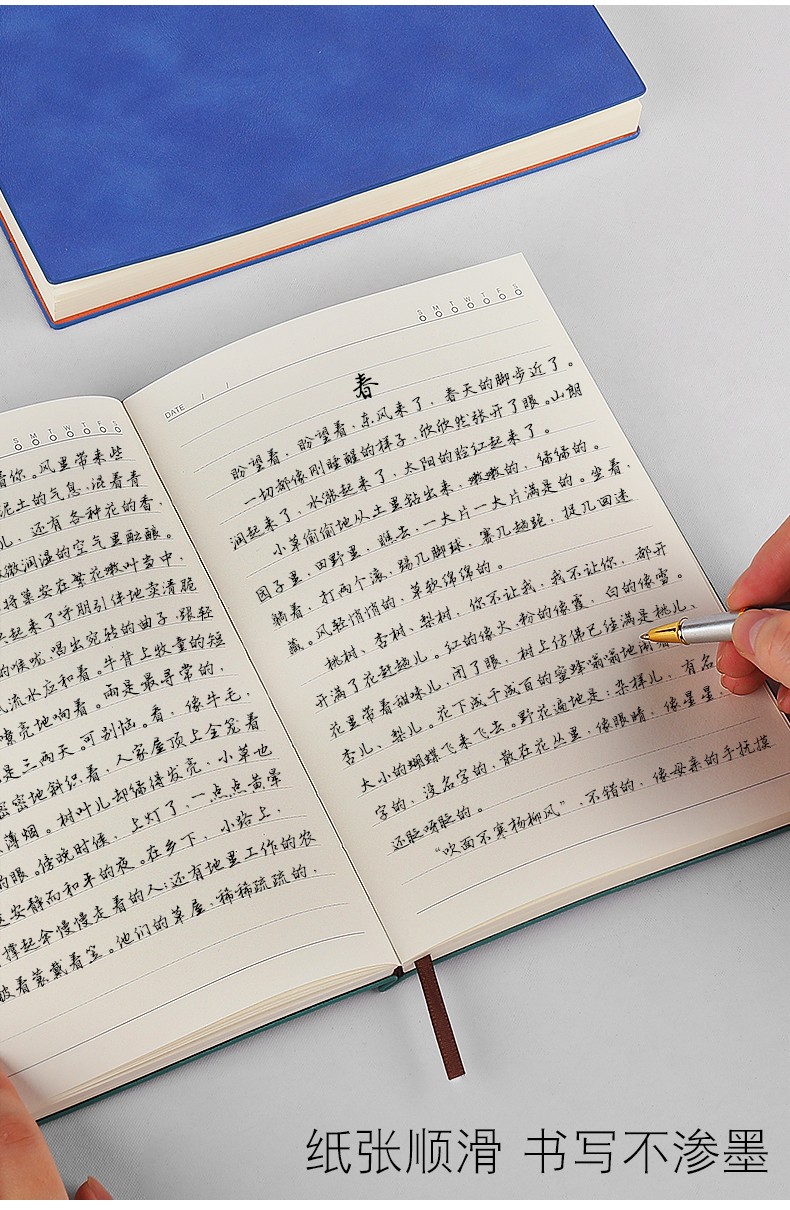 S M T W T F S
DATE / /
春
盼望着，盼望着，东风来了，春天的脚步近了。
一切都像刚睡醒的样子，欣欣然张开了眼。山朗
润起来了，水涨起来了，太阳的脸红起来了。
小草偷偷地从土里钻出来，嫩嫩的，绵绵的。
园子里，田野里，瞧去，一大片一大片满是的。坐着，
躺着，打两个滚，踢几脚球，赛几趟跑，捉几回迷
藏。风轻悄悄的，草软绵绵的。
桃树、杏树、梨树，你不让我，我不让你，都开
开满了花赶趟儿。红的像火，粉的像霞，白的像雪。
花里带着甜味儿，闭了眼，树上仿佛已经满是桃儿、
杏儿、梨儿。花下成千成百的蜜蜂嗡嗡地闹着，
大小的蝴蝶飞来飞去。野花遍地是：杂样儿，有名
字的，没名字的，散在花丛里，像眼睛，像星星，
还眨呀眨的。
“吹面不寒杨柳风”，不错的，像母亲的手抚摸
S M T W T F S
着你。风里带来些
泥土的气息，混着青
儿，还有各种花的香，
微微润湿的空气里酝酿。
将巢安在繁花嫩叶当中，
兴起来了呼朋引伴地卖清脆
的喉咙，唱出宛转的曲子，跟轻
风流水应和着。牛背上牧童的短
嘹亮地响着。雨是最寻常的，
是三两天。可别恼。看，像牛毛，
密密地斜织着，人家屋顶上全笼着
薄烟。树叶儿却绿得发亮，小草也
的眼。傍晚时候，上灯了，一点点黄晕
安静而和平的夜。在乡下，小路上，
撑起伞慢慢走着的人；还有地里工作的农
披着蓑戴着笠。他们的草屋，稀稀疏疏的，
纸张顺滑 书写不渗墨